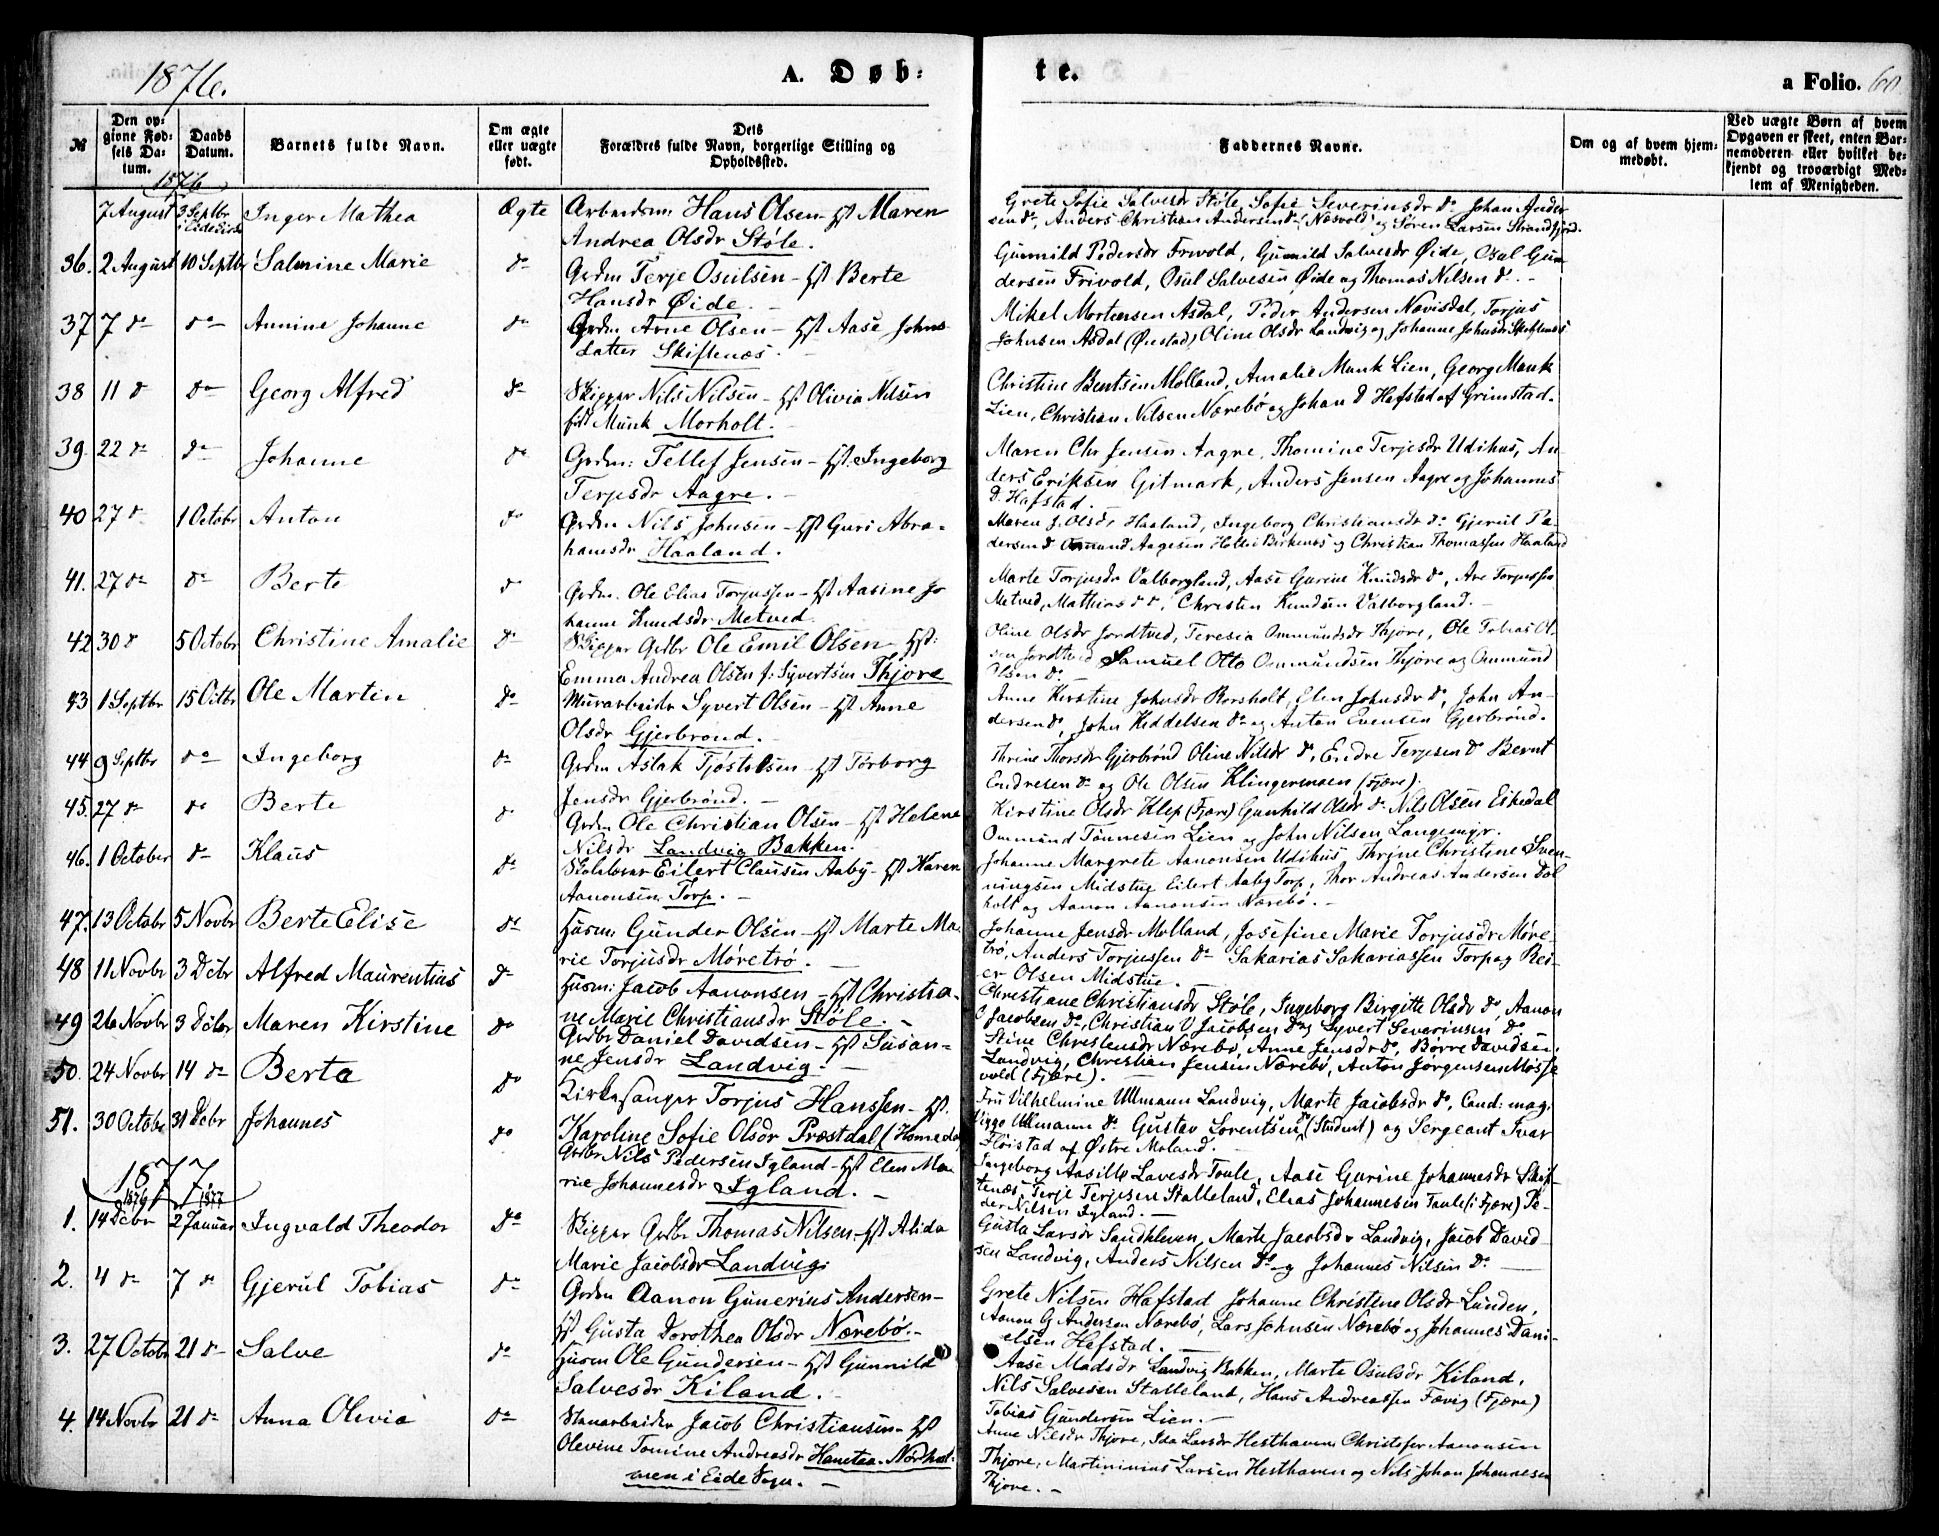 1876.
A. Døb:
te.
a Folio. 60
№
Den op-
givne Fød-
sels Da-
tum.
Daabs
Datum.
Barnets fulde Navn.
Om ægte
eller uægte
født.
Dets
Forældres fulde Navn, borgerlige Stilling og
Opholdssted.
Faddernes Navne.
Om og af hvem hjem-
medøbt.
Ved uægte Børn af hvem
Opgaven er skeet, enten Bar-
nemoderen eller hvilket be-
kjendt og troværdigt Med-
lem af Menigheden.
1876
7 August 3 Septbr Inger Mathea Ægte Arbeidsm: Hans Olsen - Hst Maren
Andrea Olsdr Støle.
Grete Sofie Salvesdr Støle, Sofie Severinsdr do Johan Ander
sen do, Anders Christian Andersen do (Næsvold) og Søren Larsen Strandfjord.
36. 2 August 10 Septbr Salmine Marie do Grdm Terje Osulsen - Hst Berte
Hansdr Øide.
Gunnild Pedersdr Frivold, Gunnild Salvesdr Øide, Osul Gun
dersen Frivold, Osul Salvesen Øide og Thomas Nilsen do. -
37 7 do do Annine Johanne do Grdm Arne Olsen - Hst Aase Johns
datter Skiftenæs. -
Mikel Mortensen Asdal, Peder Andersen Nævisdal, Torjus
Johnsen Asdal (Øiestad) Oline Olsdr Landvig og Johanne Johnsdr Skiftenæs
38 11 do do Georg Alfred do Skipper Nils Nilsen - Hst Olivia Nilsen
født Munk Morholt. -
Christine Bentsen Molland, Amalie Munk Lien, Georg Munk
Lien, Christian Nilsen Nærebø og Johan D Hafstad af Grimstad.
39. 22 do do Johanne do Grdm: Tellef Jensen - Hst Ingeborg
Terjesdr Aagre. -
Maren Chr Jensen Aagre, Thomine Terjesdr Udihus, An
ders Eriksen Gitmark, Anders Jensen Aagre og Johannes
D. Hafstad.
40 27 do 1 Octobr Anton do Grdm Nils Johnsen - Hst Guri Abra-
hamsdr Haaland.
Maren J. Olsdr Haaland, Ingeborg Christiansdr do Gjerul Pe-
dersen do Omund Aagesen Birkenes og Christian Thomassen Haaland
41. 27 do do Berte do Grdm. Ole Elias Torjussen - Hst Aasine Jo
hanne Knudsdr Metved.
Marte Torjusdr Valborgland, Aase Gurine Knudsdr do, Are Torjussen
Metved, Mathias do do, Christen Knudsen Valborgland. -
42 30 do 5 Octobr Christine Amalie do Skipper Grdbr Ole Emil Olsen - Hst:
Emma Andrea Olsen f: Syvertsen Thjore
Oline Olsdr Jordtved, Teresia Ommundsdr Thjore, Ole Tobias Ol-
sen Jordtved Samuel Otto Ommundsen Thjore og Ommund
Olsen do -
43 1 Septbr 15 Octbr Ole Martin do Murarbeider Syvert Olsen - Hst Anne
Olsdr Gjerbrønd. -
Anne Kirstine Johnsdr Rorsholt, Elen Johnsdr do, John An-
dersen do, John Keddelsen do og Anton Evensen Gjerbrønd.
44 9 Septbr do Ingeborg do Grdm Aslak Tjøstelsen - Hst Torborg
Jensdr Gjerbrønd. -
Thrine Thorsdr Gjerbrønd Oline Nilsdr do, Endre Terjesen do Bernt
Endresen do og Ole Olsen Klingeremoen (Fjære).
45. 27 do do Berte do Grdm Ole Christian Olsen - Hst Helene
Nilsdr Landvig Bakken
Kirstine Olsdr Klep (Fjære) Gunhild Olsdr do Nils Olsen Eskedal
Ommund Tønnesen Lien og John Nilsen Langemyr.
46. 1 October do Klaus do Skolelærer Eilert Clausen Aaby - Hst Karen
Aanonsen Torp. -
Johanne Margrete Aanonsen Udihus, Thrine Christine Sven-
ningsen Midstue Eilert Aaby Torp, Thor Andreas Andersen Dol
holt og Aanon Aanonsen Nærebø. -
47. 13 Octobr 5 Novbr Berte Elise do Husm: Gunder Olsen - Hst Marte Ma-
rie Torjusdr Møretrø. -
Johanne Jensdr Molland, Josefine Marie Torjusdr Møre-
trø, Anders Torjussen do Sakarias Sakariassen Torp og Rei-
er Olsen Midstue.
48 11 Novbr 3 Dcbr Alfred Maurentius do Husm: Jacob Aanonsen - Hst Christia-
ne Marie Christiansdr Støle. -
Christiane Christiansdr Støle, Ingeborg Birgitte Olsdr do, Aanon
C Jacobsen do, Christian V Jacobsen do og Syvert Severinsen do
49 26 Novbr 3 Dcbr Maren Kirstine do Grdbr Daniel Davidsen - Hst Susan-
ne Jensdr Landvig. -
Stine Christensdr Nærebø, Anne Jensdr do, Børre Davidsen
Landvig, Christian Jensen Nærebø, Anton Jørgensen Møsse
vold (Fjære). -
50. 24 Novbr 14 do Berta do Kirkesanger Torjus Hanssen - Hst.
Karoline Sofie Olsdr Præstdal (Homedal
Fru Vilhelmine Ullmann Landvig, Marte Jacobsdr do, Cand: mag:
Viggo Ullmann do Gustav Lorentsen do (Student) og Sergeant Ivar
Fløistad af Østre Moland.
51. 30 Octobr 31 Dcbr Johannes do Grdbr Nils Pedersen Igland - Hst Elen Ma
rie Johannesdr Igland. -
Ingeborg Aasille Lavesdr Taule, Aase Gurine Johannesdr Skif-
tenæs, Terje Terjesen Stalleland, Elias Johannesen Taule (i Fjære) Pe-
der Nilsen Igland. -
1877.
1876 1877
1. 14 Dcbr 2 Januar Ingvald Theodor do Skipper Grdbr Thomas Nilsen - Hst Alida
Marie Jacobsdr Landvig.
Gusta Larsdr Sandkleven, Marte Jacobsdr Landvig, Jacob David
sen Landvig, Anders Nilsen do og Johannes Nilsen do -
2. 4 do 7 do Gjerul Tobias do Grdm Aanon Gunerius Andersen -
Hst Gusta Dorothea Olsdr Nærebø. -
Grete Nilsen Hafstad Johanne Christine Olsdr Lunden,
Aanon G Andersen Nærebø, Lars Johnsen Nærebø og Johannes Dani-
elsen Hafstad. -
3. 27 Octobr 21 do Salve do Husm Ole Gundersen - Hst Gunnild
Salvesdr Kiland. -
Aase Madsdr Landvig Bakken, Marte Osulsdr Kiland,
Nils Salvesen Stalleland, Hans Andreassen Fævig (Fjære)
Tobias Gundersen Lien. -
4. 14 Novbr 21 do Anna Olivia do Stenarbeider Jacob Christiansen - Hst
Olevine Tomine Andreasdr
men i Eide Sogn. -
Anne Nilsdr Thjore, Ida Larsdr Hesthaven Christofer Aanonsen
Thjore, Martininius Larsen Hesthaven og Nils Johan Johannesen
Thjore. -